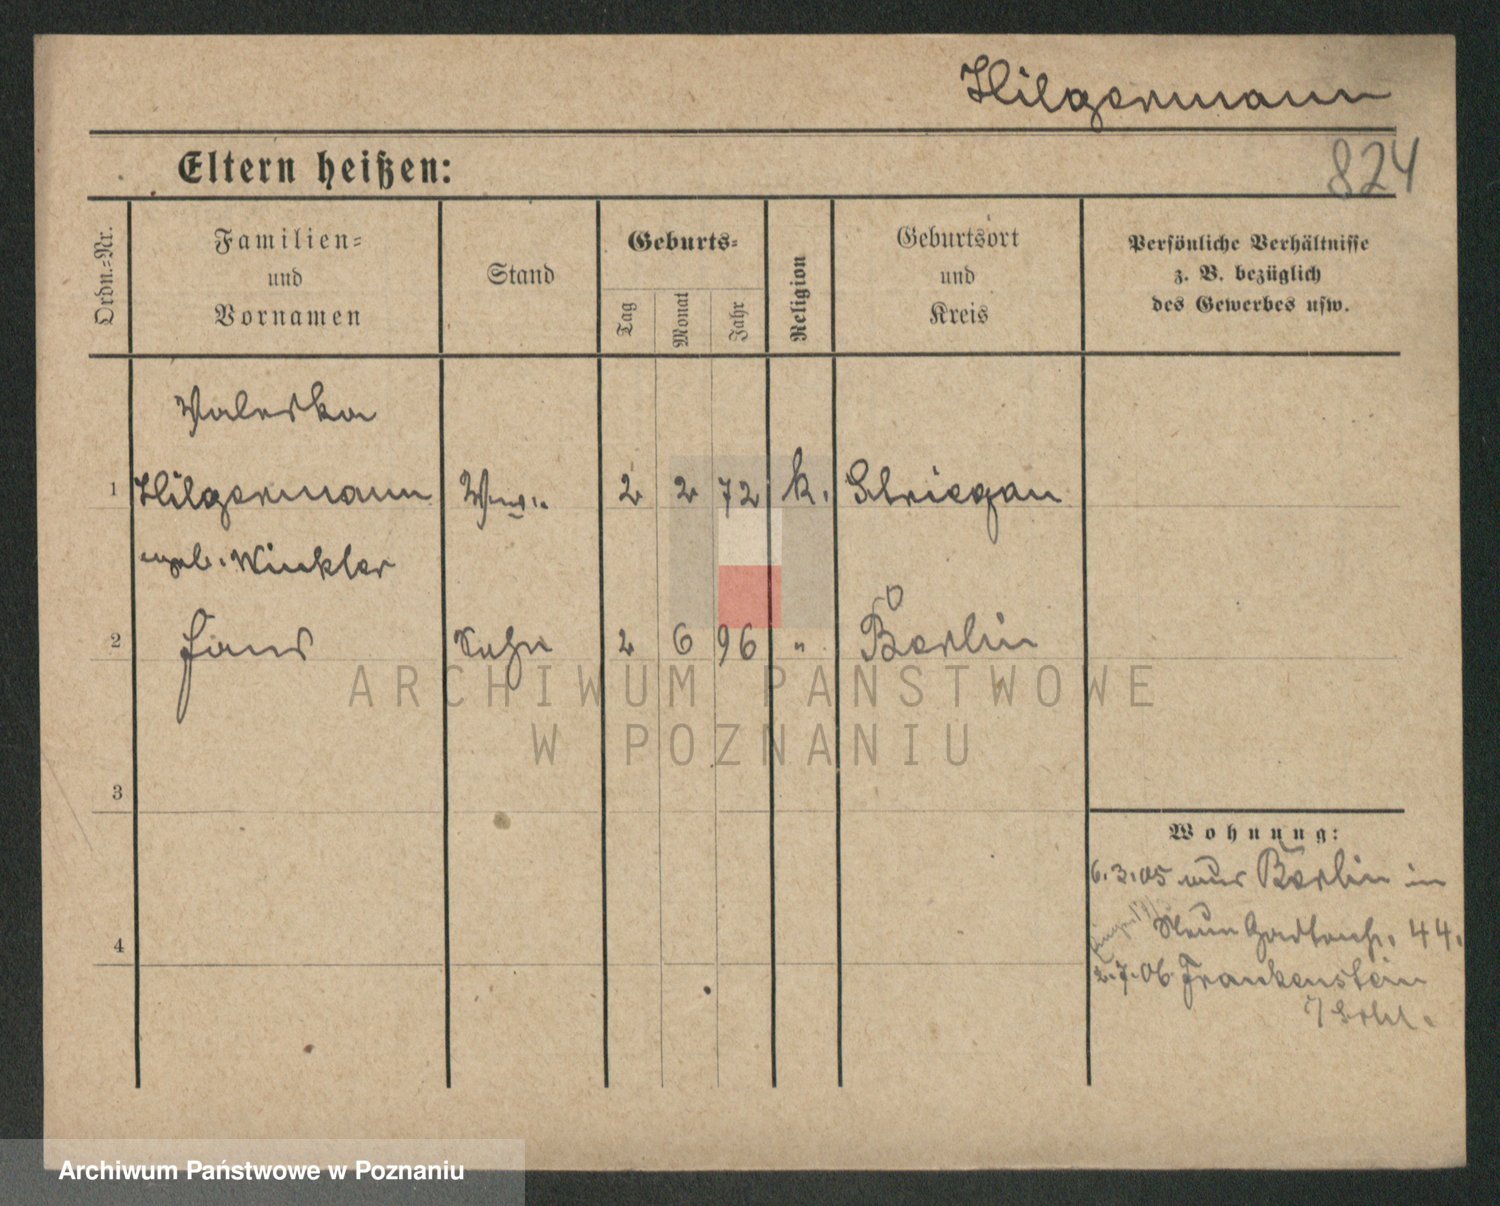 Hilgermann
824
Eltern heißen:
Ordn.-Nr.
Familien-
und
Vornamen
Stand
Geburts-
Tag
Monat
Jahr
Religion
Geburtsort
und
Kreis
Persönliche Verhältnisse
z. B. bezüglich
des Gewerbes usw.
Valeska
1 Hilgermann Ww. 2 2 72 k. Striegau
geb. Winkler
2 Hans Sohn 2 6 96 " Berlin
3
4
Wohnung:
6.3.05 aus Berlin in
44.
2.7.06 Frankenstein
i/Schl.
ARCHIWUM PAŃSTWOWE
W POZNANIU
Archiwum Państwowe w Poznaniu